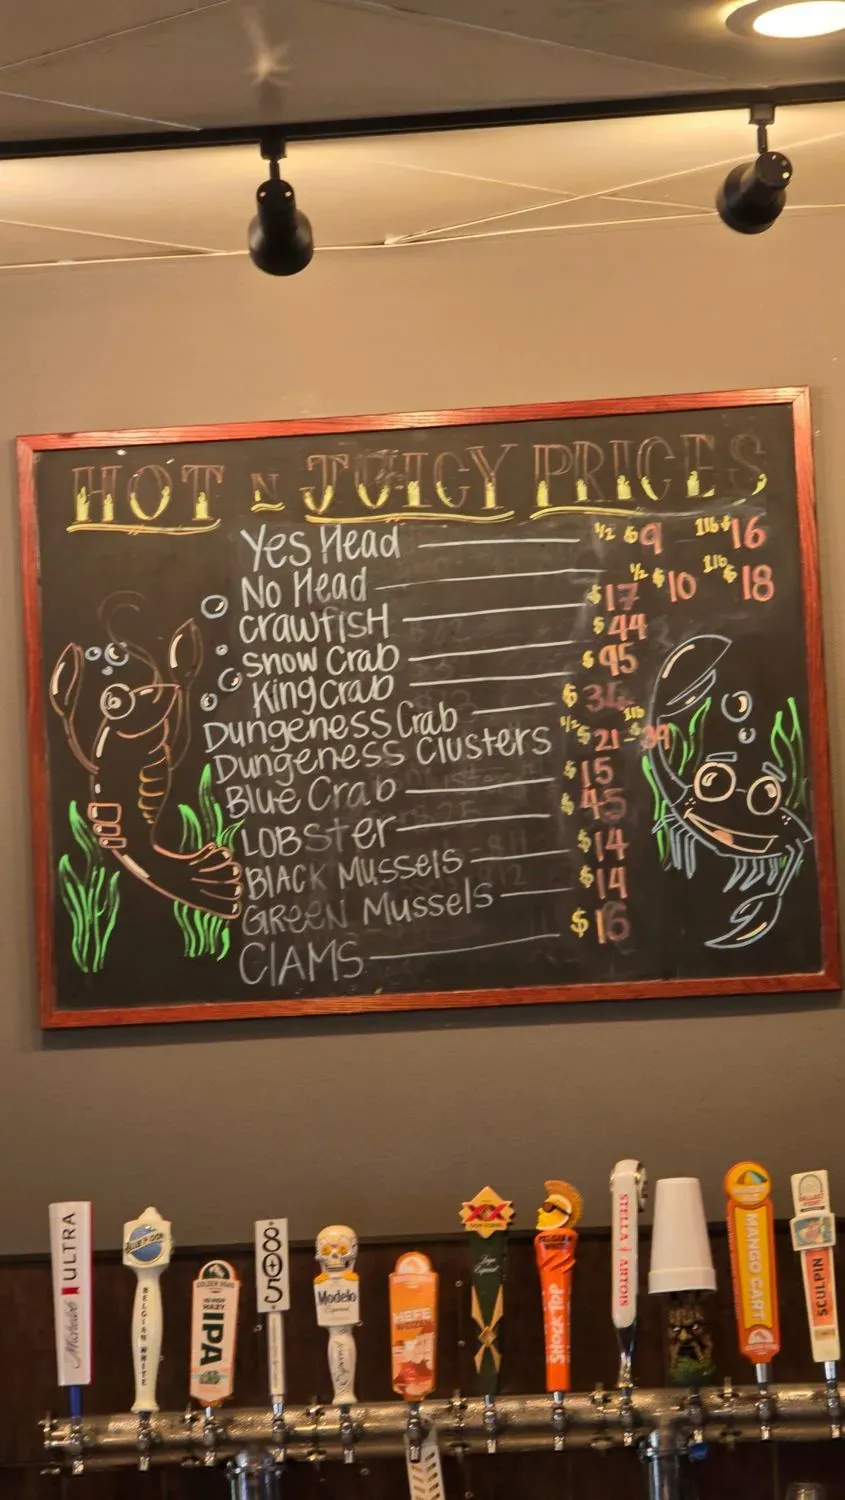 HOT N JUICY PRICES
Yes Head 1/2 $9 1lb $16
No Head 1/2 $10 1lb $18
CRAWFISH $17
SNOW CRAB $44
King CRAB $95
Dungeness Crab $
Dungeness Clusters 1/2 $21 - 1lb 39
BLUE CRAB $15
LOBSTER $45
BLACK Mussels $14
GREEN Mussels $14
ClAMS $16
Michelob ULTRA
BLUE MOON
BELGIAN WHITE
GOLDEN ROAD
HAZY
IPA
805
Modelo
Especial
HEFE
XX
BELGIAN
WHITE
SHOCK TOP
STELLA ARTOIS
MANGO CART
BALLAST POINT
SCULPIN